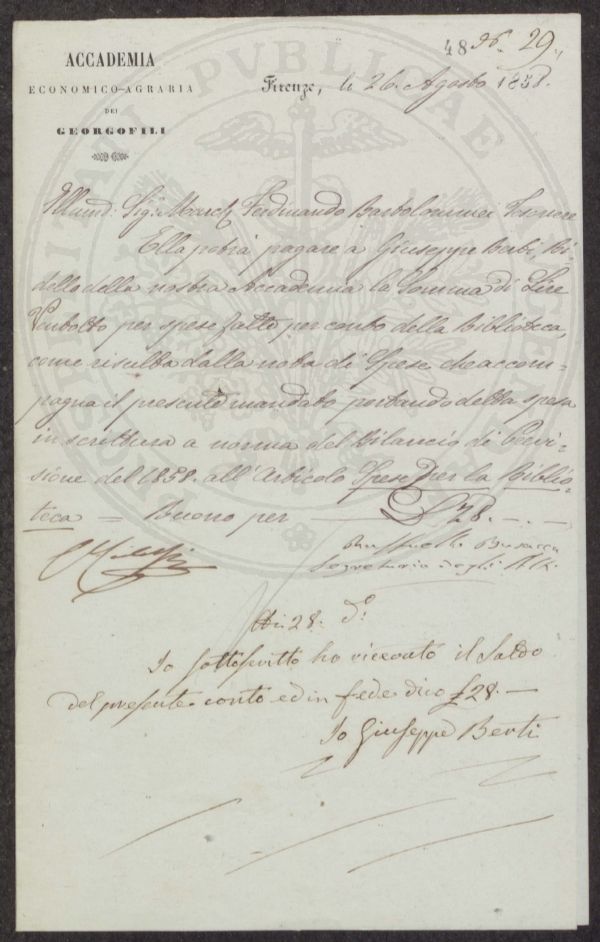 48 N.º 29.
ACCADEMIA
ECONOMICO-AGRARIA
DEI
GEORGOFILI
Firenze, li 26. Agosto 1858.
Illmo. Sig. March. Ferdinando Bartolommei Tesoriere
Ella potrà pagare a Giuseppe Berti, Bi-
dello della nostra Accademia la Somma di Lire
Ventotto per spese fatte per conto della Biblioteca,
come risulta dalla nota di Spese che accom-
pagna il presente mandato portando detta spesa
in scrittura a norma del Bilancio di Previ-
sione del 1858. all'Articolo Spese per la Biblio-
teca = Buono per £ 28. -. -
Raffaello Busacca
Segretario degli Atti.
A dì 28. dº.
Io sottoscritto ho ricevuto il Saldo
del presente conto ed in fede dico £ 28. —
Io Giuseppe Berti